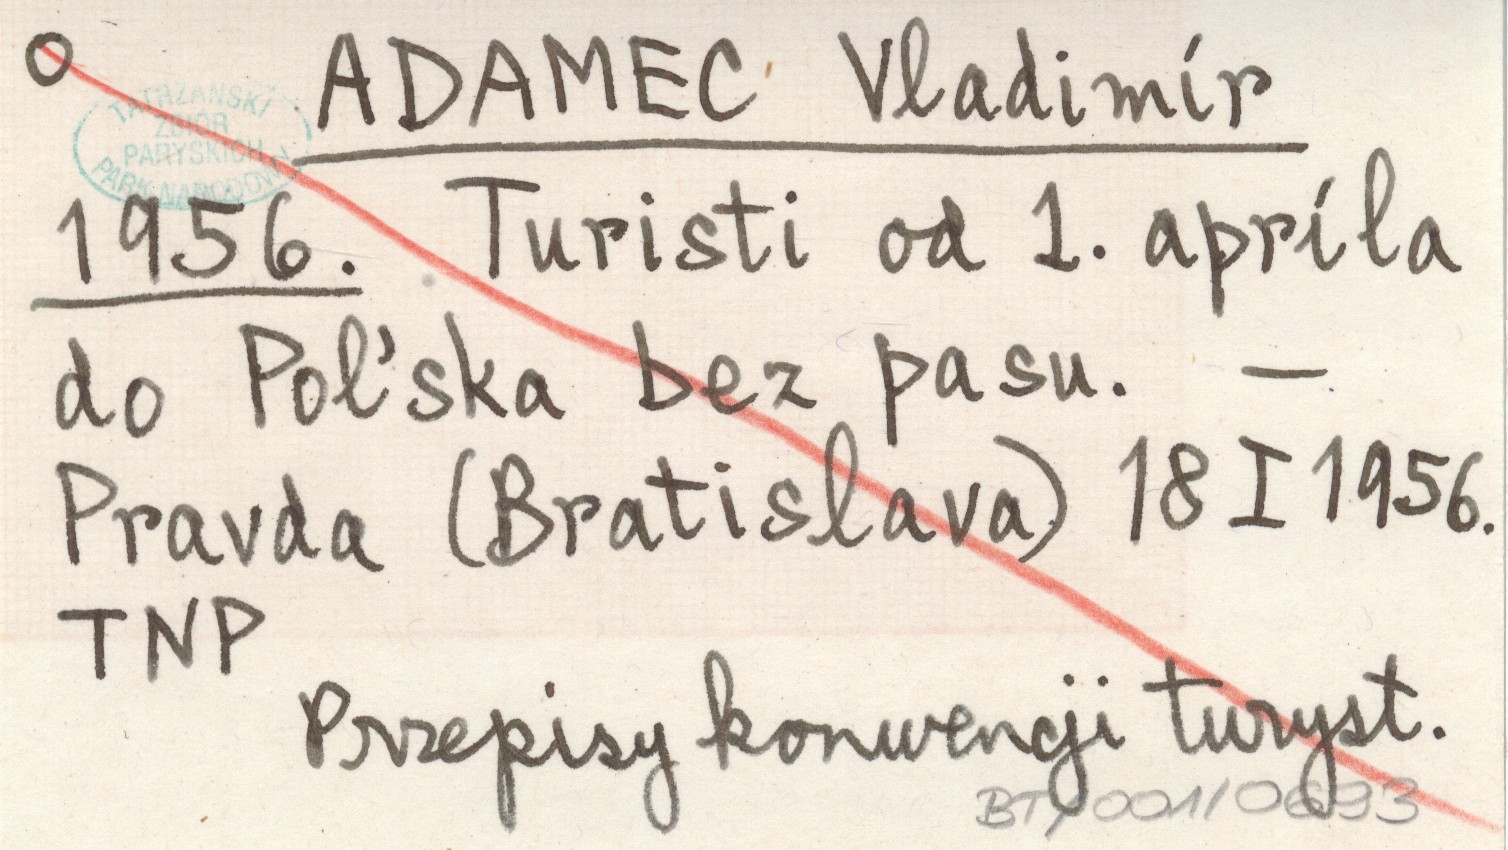 O ADAMEC Vladimír
TATRZAŃSKI
ZBIÓR
PARYSKICH
PARK NARODOWY
1956. Turisti od 1. apríla
do Poľska bez pasu. —
Pravda (Bratislava) 18 I 1956.
TNP
Przepisy konwencji turyst.
BT/001/0693